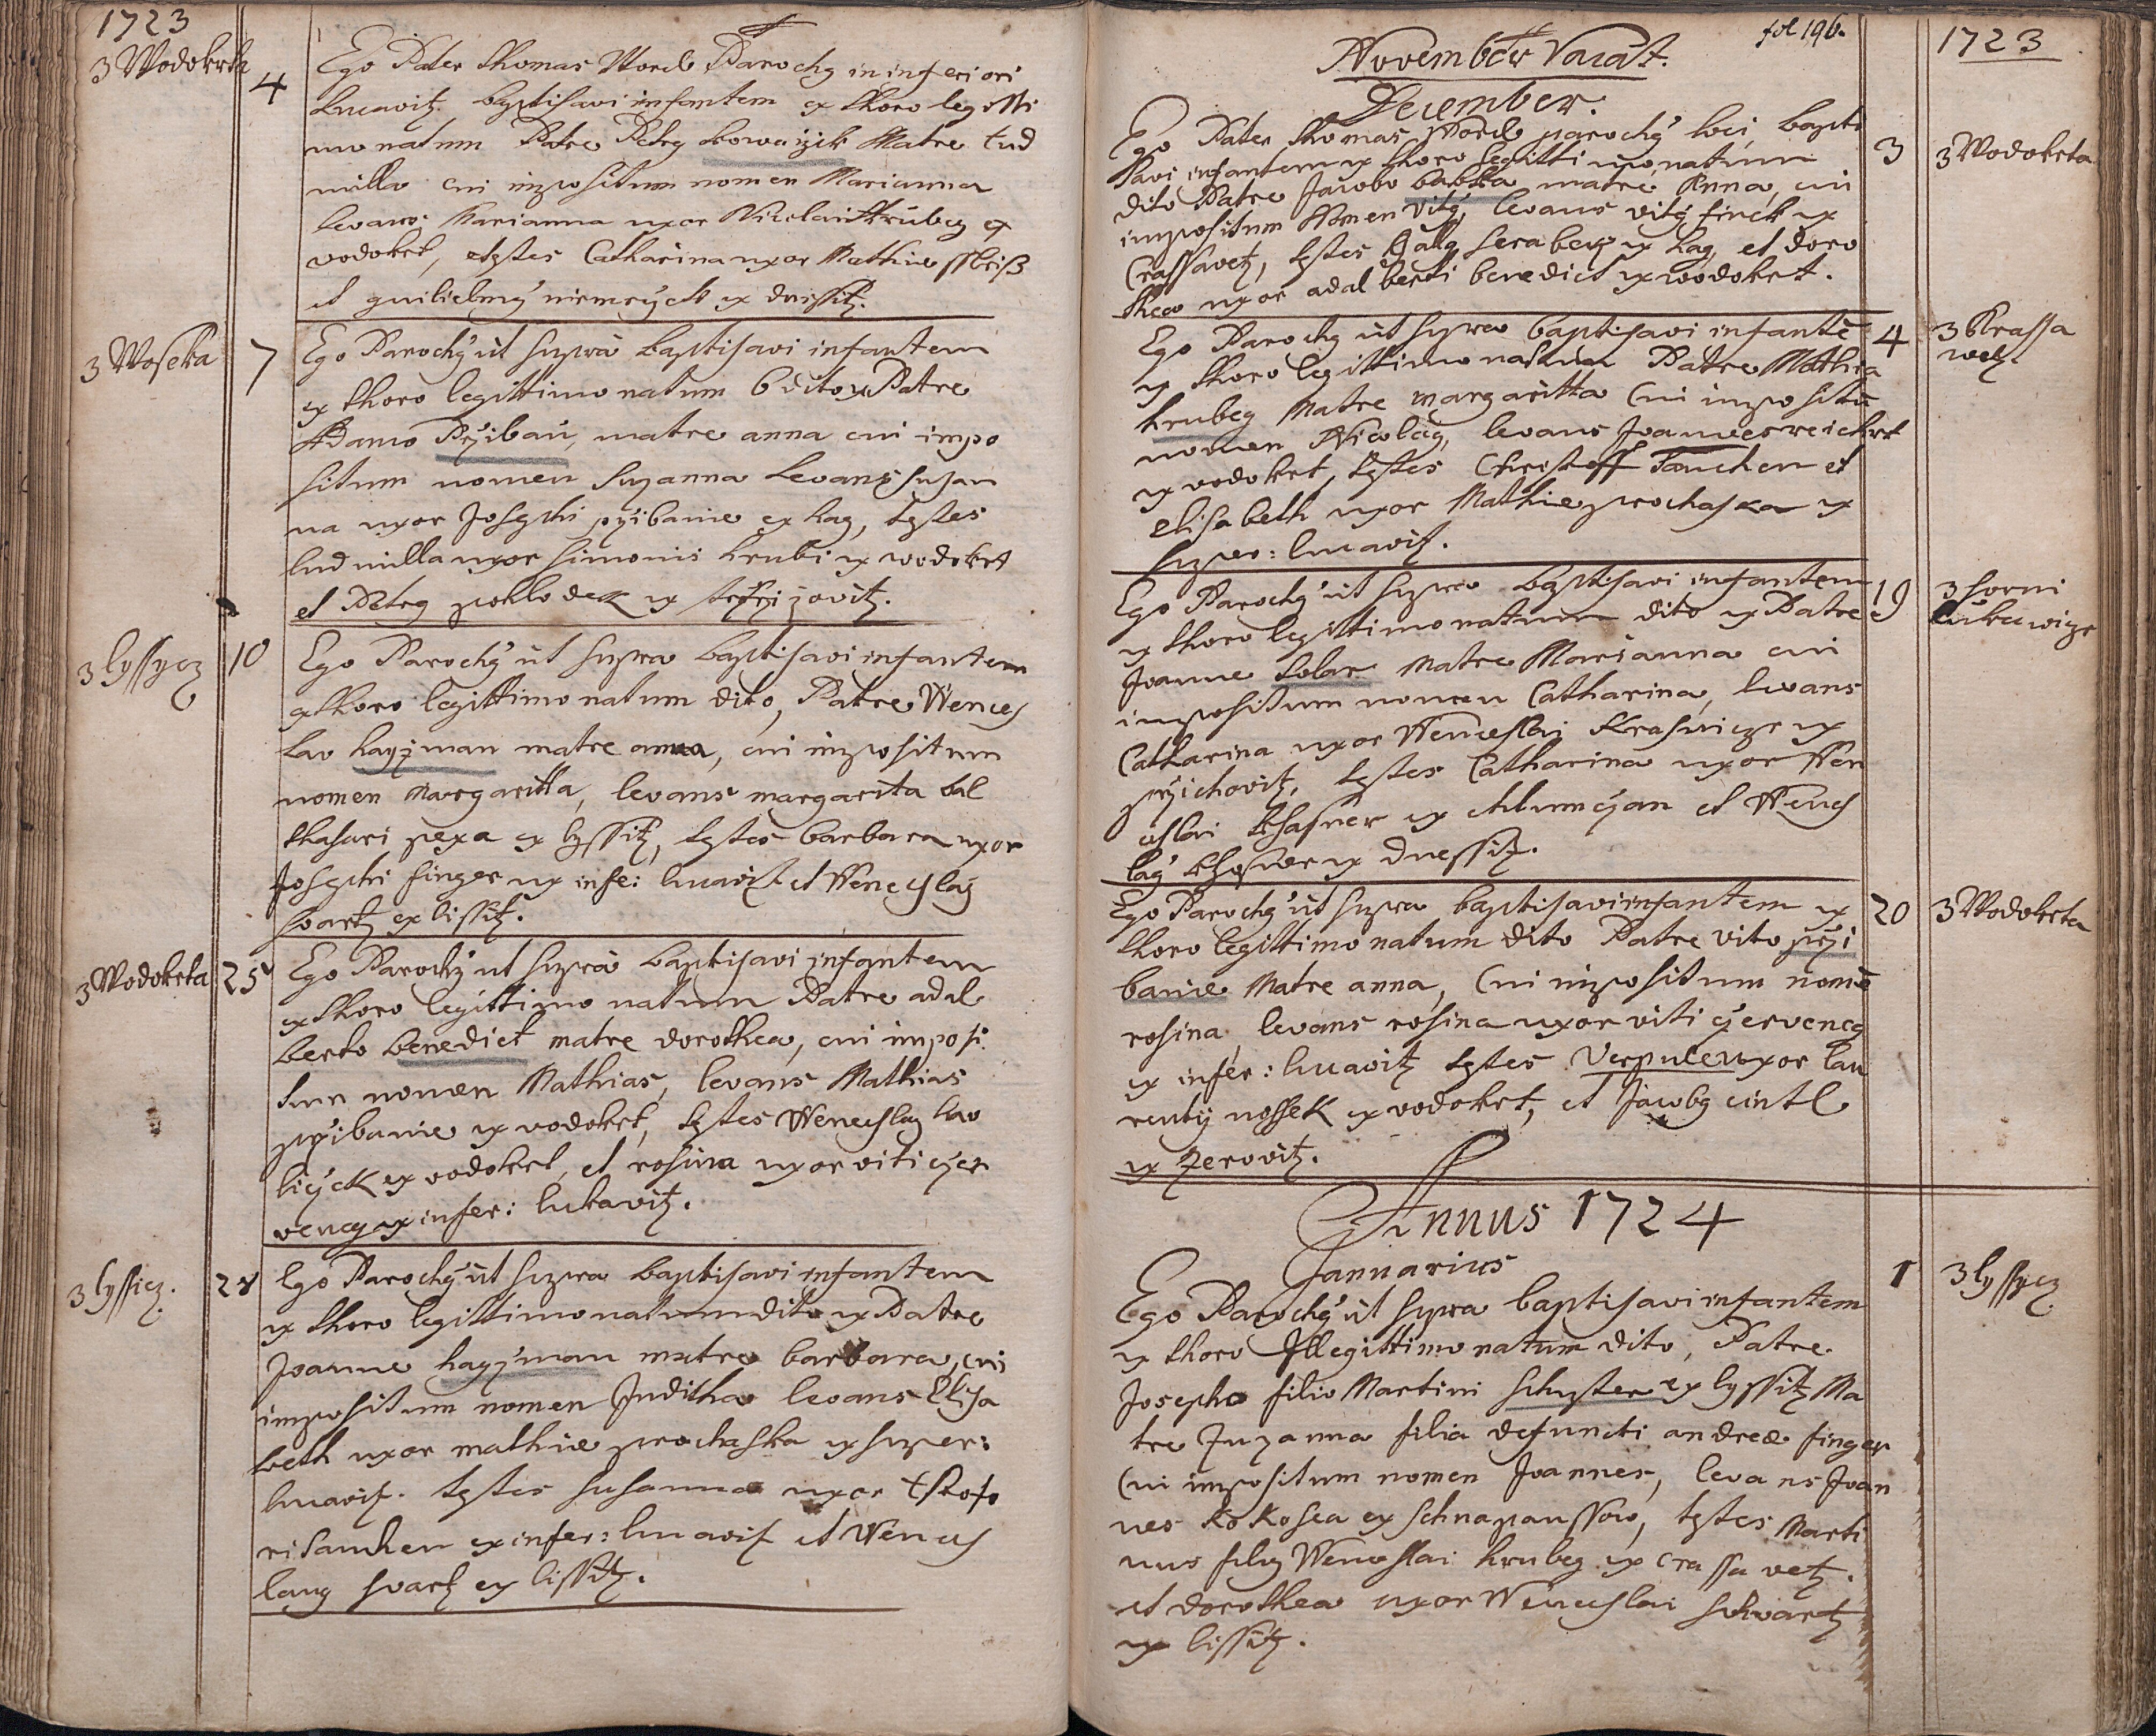 1723
3 Wodokrta
4
Ego Pater Thomas Word Parochg in inferiori
Lucavitz baptisavi infantem ex thoro legitti
mo natum Patre Petrg kowarzik Matre Lud
milla cui impositum nomen Marianna
levans Marianna uxor Nicolai Hrubeg ex
vodokrt, testes Catharina uxor Mathiae
et guilielmg ex dnissitz.
3 Woseka
7
Ego Parochg ùt supra baptisavi infantem
ex thoro legittimo natum dito ex Patre
Adamo Pržibaù, matre anna cui impo
situm nomen Suzanna Levans Susan
na uxor Josephi pržibanie ex hag, testes
ludmilla uxor simonis hrubi ex wodokrt
et Petrg pohlodek ex
3 lyssycz
10
Ego Parochg ùt supra baptisavi infantem
ex thoro legittimo natum dito, Patre Wences
lao hayzman matre anna, cui impositum
nomen Margaritta, levans margarita bal
thasari pexa ex lyssitz, testes barbara uxor
Josephi finger ex infe: lucavitz et Wenceslag
svartz ex lissitz.
3 Wodokrta
25
Ego Parochg ut supra baptisavi infantem
ex thoro legittimo natum Patre adal
berto benedict matre dorothea, cui imposi
tum nomen Mathias, levans Mathias
pržibanie ex vodokrt, testes Wenceslag hav
liczek ex vodokrt, et rosina uxor viti czer
veneg ex infer: lukavitz.
3 lyssicz.
28
Ego Parochg ùt supra baptisavi infantem
ex thoro legittimo natum dito ex Patre
Joanne hayzman matre barbara, cui
impositum nomen Juditha levans Elisa
beth uxor mathiae prochaska ex super:
lucavitz. testes susanna uxor
ri Sauchen ex infer: lucavitz et Wences
laug svartz ex lissitz.
fol 196.
1723
November Vacat.
December.
Ego Pater Thomas Word parochg loci, bapti
savi infantem ex thoro legittimo natum
dito Patre Jacobo babka matre Anna, cui
impositum Nomen vitg, levans vitg finck ex
Crassavetz, testes Balg serabek ex hag, et doro
thea uxor adalberti benedict ex wodokrt.
3
3 Wodokrta
Ego Parochg ùt supra baptisavi infantē
ex thoro legittimo natum Patre Mathia
hrubeg Matre margaritta Cui impositū
nomen Nicolag, levans Joannes reichrt
ex vodokrt, testes Christoff Sauchen et
elisabeth uxor Mathiae prochaska ex
super: lucavitz.
4
3 Krassa
wetz
Ego Parochg ùt supra baptisavi infantem
ex thoro legittimo natum dito ex Patre
Joanne Kolar Matre Marianna cui
impositum nomen Catharina, levans
Catharina uxor Wenceslai Krasniczr ex
pržichovitz, testes Catharina uxor Wen
ceslai ex chlumczan et Wences
lag ex Dnessitz.
19
3 horni
Lukawicze
Ego Parochg ùt supra baptisavi infantem ex
thoro legittimo natum dito Patre Vito prži
banie Matre anna, Cui impositum nomē
rosina, levans rosina uxor viti czerveneg
ex infer: lucavitz testes uxor lau
rentij nossek ex vodokrt, et Jacobg cintl
ex Zerovitz.
20
3 Wodokrta
Annus 1724
Januarius
Ego Parochg ùt supra baptisavi infantem
ex thoro Illegittimo natum dito, Patre
Josepho filio Martini schuster ex lyssitz Ma
tre Zuzanna filia defuncti andreae finger
Cui impositum nomen Joannes, levans Joan
nes kokosca ex schnapaussow, testes Marti
nus filig Wenceslai hrubeg ex crassavetz.
et dorothea uxor Wenceslai schvartz
ex lissitz.
1
3 lyssycz